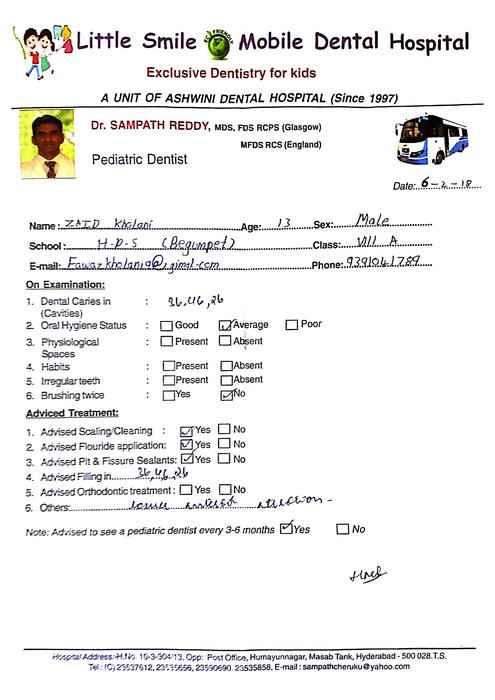 Little Smile Mobile Dental Hospital
ECO FRIENDLY
Exclusive Dentistry for kids
A UNIT OF ASHWINI DENTAL HOSPITAL (Since 1997)
Dr. SAMPATH REDDY, MDS, FDS RCPS (Glasgow)
MFDS RCS (England)
Pediatric Dentist
Date: 6-2-18
Name: ZAID Kholani Age: 13 Sex: Male
School: H-P-S (Begumpet) Class: VIII A
E-mail: Fawazkholania@gimal-com Phone: 9391041789
On Examination:
1. Dental Caries in : 36, 46, 26
(Cavities)
2. Oral Hygiene Status : Good Average Poor
3. Physiological : Present Absent
Spaces
4. Habits : Present Absent
5. Irregular teeth : Present Absent
6. Brushing twice : Yes No
Adviced Treatment:
1. Advised Scaling/Cleaning : Yes No
2. Advised Flouride application: Yes No
3. Advised Pit & Fissure Sealants: Yes No
4. Advised Filling in 36, 46, 26
5. Advised Orthodontic treatment : Yes No
6. Others: lower
Note: Advised to see a pediatric dentist every 3-6 months Yes No
Hospital Address: H.No. 10-3-304/13, Opp: Post Office, Humayunnagar, Masab Tank, Hyderabad - 500 028.T.S.
Tel.: (C) 23537612, 23535656, 23590690, 23535858, E-mail : sampathcheruku@yahoo.com